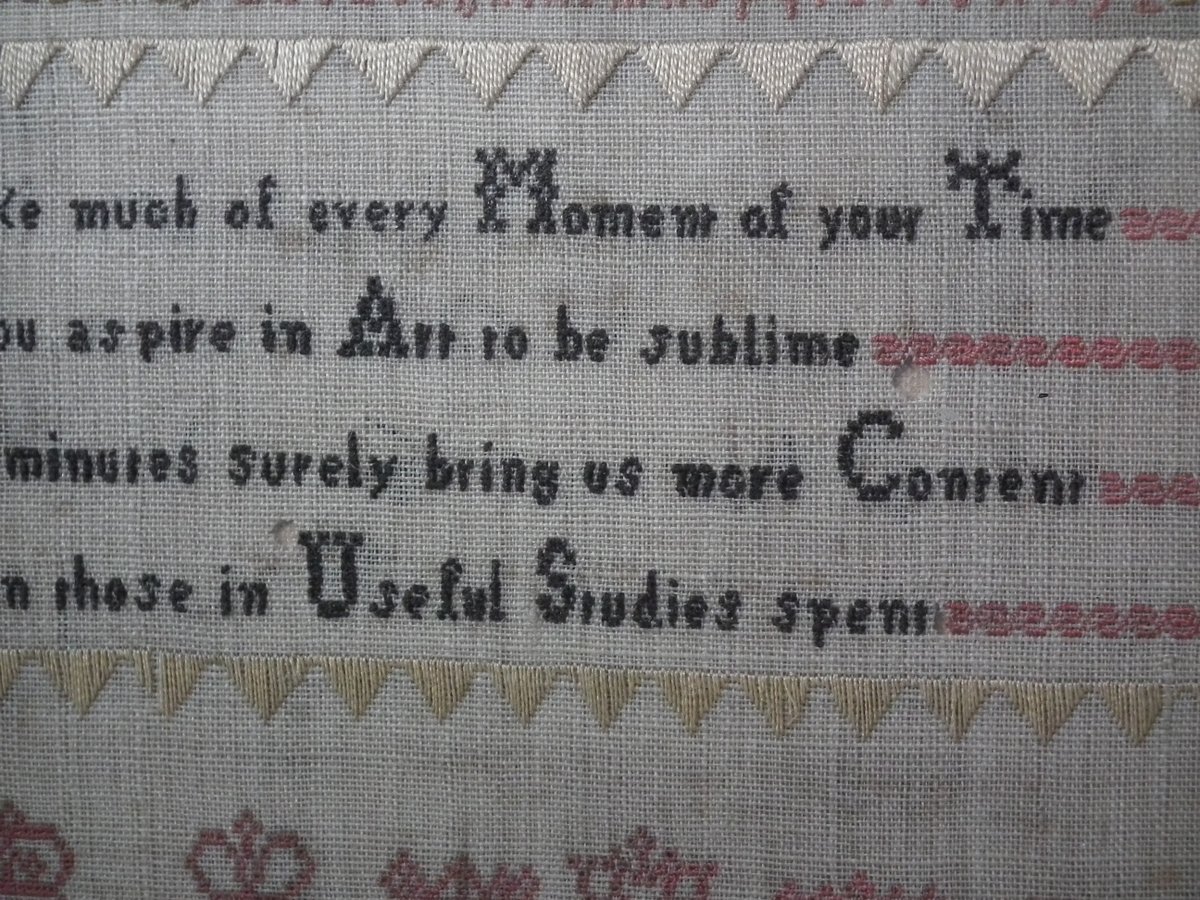 ke much of every Moment of your Time
ou aspire in Art to be sublime
minutes surely bring us more Content
n those in Useful Studies spent